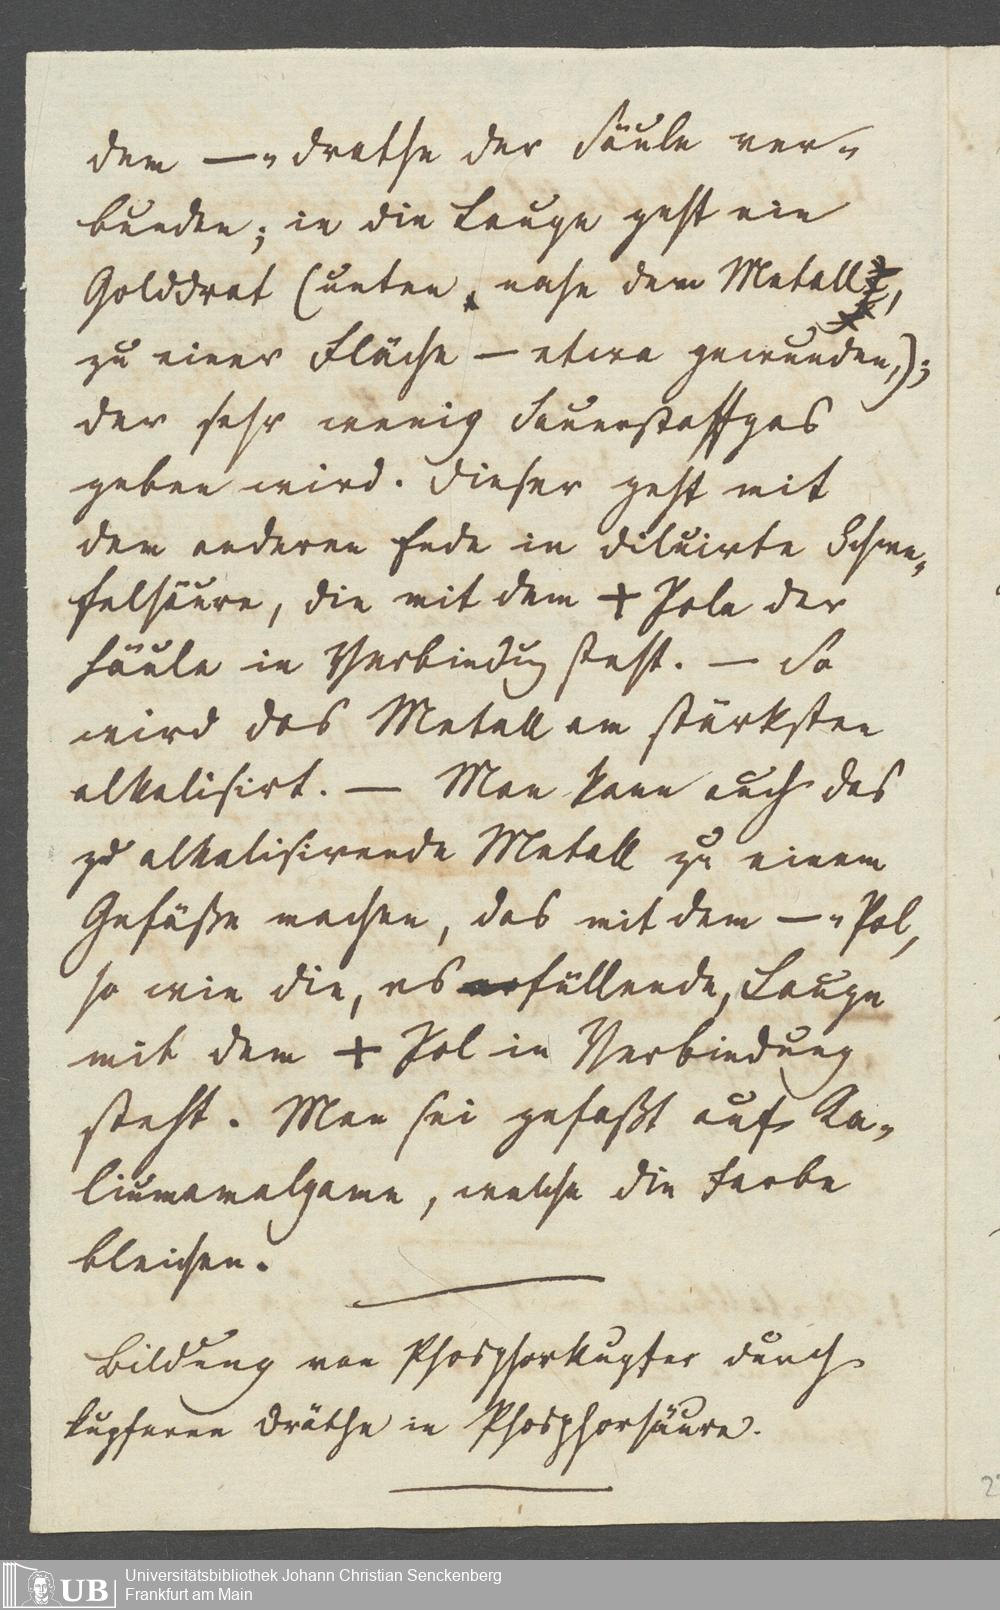 dem —„drathe der Säule ver„
bunden; in die Lauge geht ein
Golddrat (unten, nahe dem Metall,
zu einer Fläche — etwa gewunden,);
der sehr wenig Sauerstoffgas
geben wird. Dieser geht mit
dem anderen Ende in diluirte Schwe„
felsäure, die mit dem + Pole der
Säule in Verbindung steht. — So
wird das Metall am stärksten
alkalisirt. — Man kann auch das
zu alkalisirende Metall zu einem
Gefäße machen, das mit dem —„Pol,
so wie die, es erfüllende, Lauge
mit dem + Pol in Verbindung
steht. Man sei gefaßt auf Ka„
liumamalgame, welche die Farbe
bleichen.
Bildung von Phosphorkupfer durch
kupferne Dräthe in Phosphorsäure.
UB
Universitätsbibliothek Johann Christian Senckenberg
Frankfurt am Main